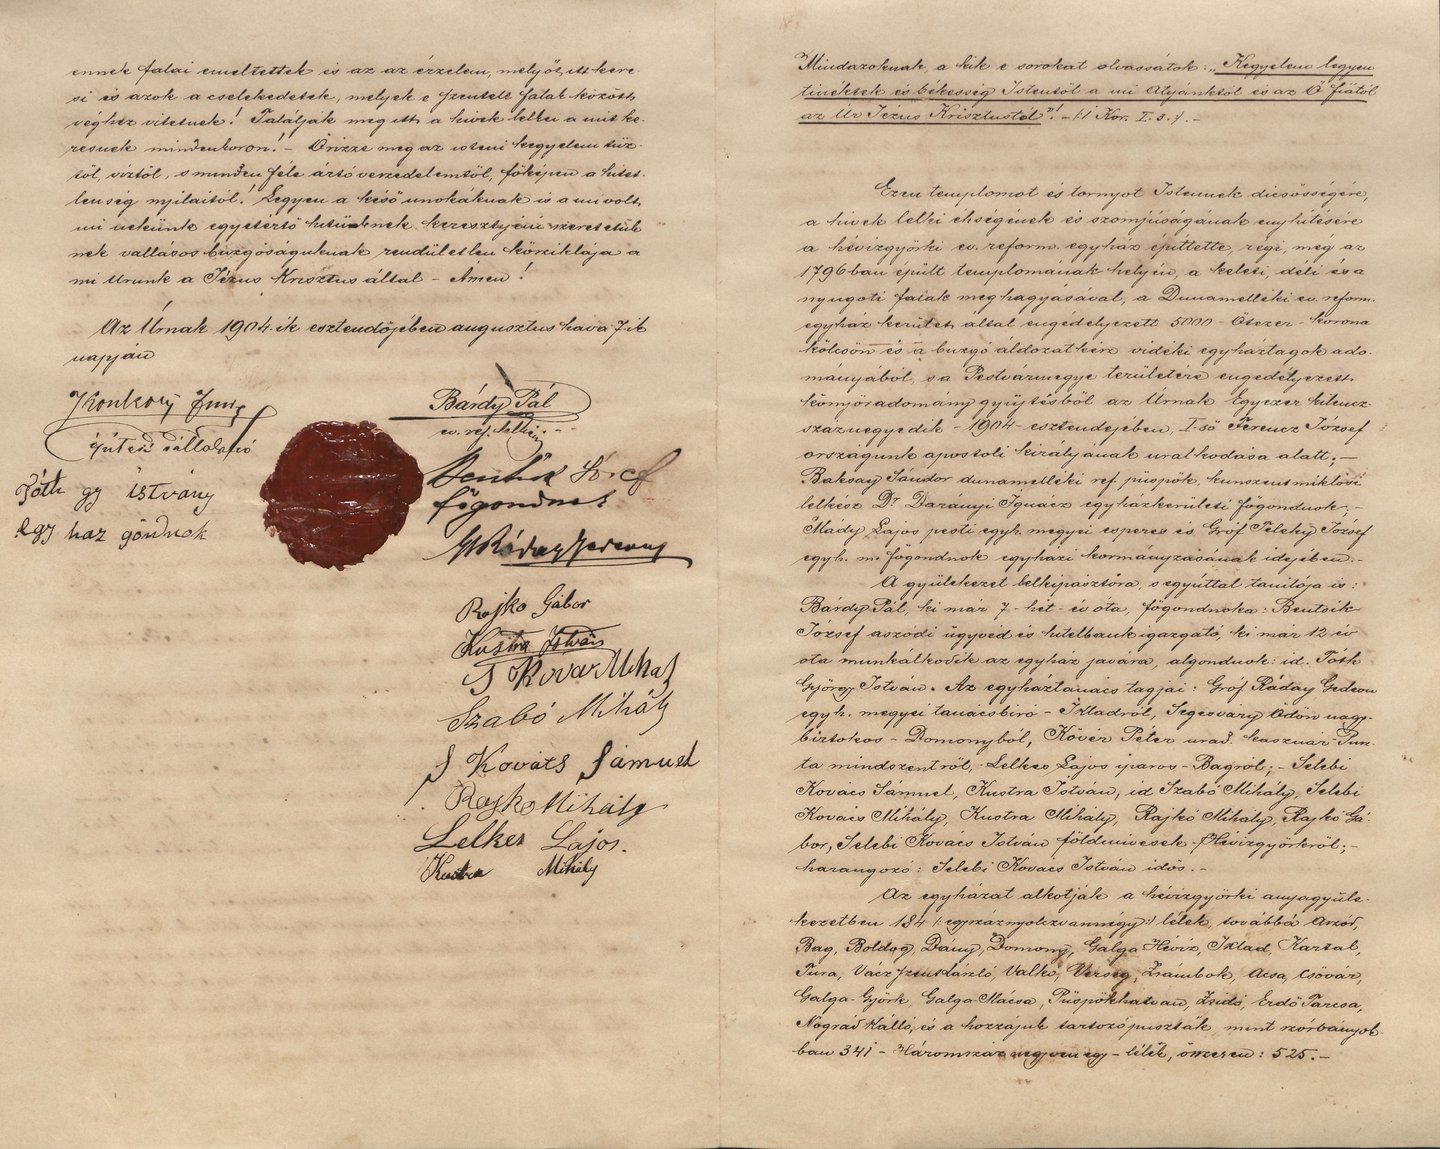 ennek falai emeltettek és az az érzelem, mely őt itt kere-
si és azok a cselekedetek, melyek e szentelt falak között
véghez vitetnek! Találják meg itt a hivek lelkei a mit ke-
resnek mindenkoron! - Őrizze meg az isteni kegyelem tüz-
től, viztől, s minden féle ártó veszedelemtől, főképen a hitet-
lenség nyilaitól! Legyen a késő unokáknak is a mi volt
mi nekünk egyetértő hitünknek keresztyéni szeretetük
nek vallásos buzgóságuknak rendületlen kősziklája a
mi Urunk a Jézus Krisztus által - Ámen!
Az Úrnak 1904-ik esztendőjében augusztus hava 7-ik
napján
épitési vállalkozó
Tóth gy istván
egy haz gondnok
Bárdy Pál
ev. ref. lelkész
Bentsik József
főgondnok
Gf Ráday Gedeon
Rajko Gábor
Kustra István
S Kovar Mihaj
Szabó Mihály
S Kováts Sámuel
Rajko Mihály
Lelkes Lajos.
Kustra Mihály
Mindazoknak, a kik e sorokat olvassátok: „Kegyelem legyen
tinéktek és békesség Istentől a mi Atyánktól és az Ő fiától
az Úr Jézus Krisztustól"! - /:I Kor. I. 3:/. -
Ezen templomot és tornyot Istennek dicsősségére,
a hivek lelki éhségének és szomjúságának enyhitésére
a hévizgyörki ev. reform. egyház épittette, régi, még az
1796ban épült templomának helyén, a keleti, déli és a
nyugoti falak meghagyásával, a Dunamelléki ev. reform.
egyház kerület által engedélyezett 5000 - Ötezer - korona
kölcsön és a buzgó áldozatkész vidéki egyháztagok ado-
mányából, s a Pestvármegye területére engedélyezett
könyöradomány gyüjtésből az Úrnak Egyezer kilencz-
száznegyedik - 1904 - esztendejében, I-ső Ferencz József
országunk apostoli királyának uralkodása alatt; -
Baksay Sándor dunamelléki ref. püspök, kunszentmiklósi
lelkész Dr Darányi Ignácz egyházkerületi főgondnok; -
Mády Lajos pesti egyh. megyei esperes és Gróf Teleky József
egyh. m. főgondnok egyházi kormányzásának idejében. -
A gyülekezet lelkipásztora, s egyúttal tanitója is:
Bárdy Pál, ki már 7 - hét - év óta, főgondnoka: Bentsik
József aszódi ügyvéd és hitelbank igazgató, ki már 12 év
óta munkálkodik az egyház javára, algondnok: id. Tóth
György István. Az egyháztanács tagjai: Gróf Ráday Gedeon
egyh. megyei tanácsbiró - Ikladról, Segesváry Ödön nagy-
birtokos - Domonyból, Kövér Péter urad. kasznár Pusz-
ta mindszentről, Lelkes Lajos iparos - Bagról; - Selebi
Kovács Sámuel, Kustra István, id Szabó Mihály, Selebi
Kovács Mihály, Kustra Mihály, Rajkó Mihály, Rajkó Gá-
bor, Selebi Kovács István földmivesek - Hévizgyörkről; -
harangozó: Selebi Kovács István idős. -
Az egyházat alkotják a hévizgyörki anyagyüle-
kezetben 184 /:egyszáznyolczvannégy:/ lélek, továbbá Aszód,
Bag, Boldog, Dány, Domony, Galga Héviz, Iklad, Kartal,
Tura, Vácz Szent László, Valkó, Verseg, Zsámbok, Acsa, Csővár,
Galga-Györk, Galga-Mácsa, Püspökhatvan, Zsidó, Erdő Tarcsa,
Nógrád Kálló, és a hozzájuk tartozó puszták, mint szórványok-
ban 341 - Háromszáz negyven egy - lélek, összesen: 525. -